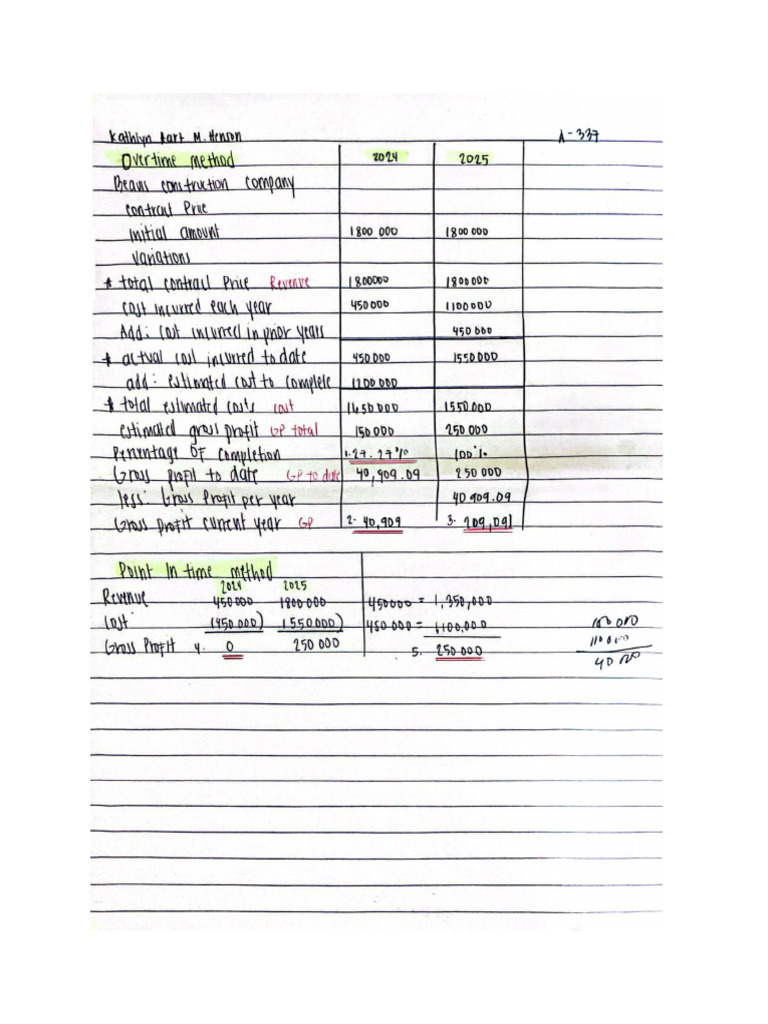 Kathlyn Kart M. Henson A-337
Overtime method 2024 2025
Beaus construction company
contract Price
initial amount 1800 000 1800 000
Variations
* total contract Price Revenue 1800000 1800000
cost incurred each year 450000 1100000
Add: cost incurred in prior years 450 000
* actual cost incurred to date 450 000 1550000
add: estimated cost to complete 1200 000
* total estimated costs cost 1650 000 1550 000
estimated gross profit GP total 150 000 250 000
Percentage OF completion 1. 27.27% 100%
Gross profit to date GP to date 40,909.09 250 000
less: Gross Profit per year 40 909.09
Gross profit current year GP 2. 40,909 3. 209,091
Point In time method
2024 2025
Revenue 450 000 1800 000 450000 = 1,350,000
Cost (450 000) (1 550 000) 450 000 = 1100,000
Gross Profit 4. 0 250 000 5. 250 000